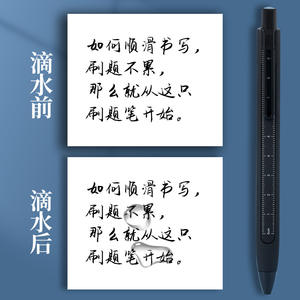 滴水前
如何顺滑书写，
刷题不累，
那么就从这只
刷题笔开始。
滴水后
如何顺滑书写，
刷题不累，
那么就从这只
刷题笔开始。